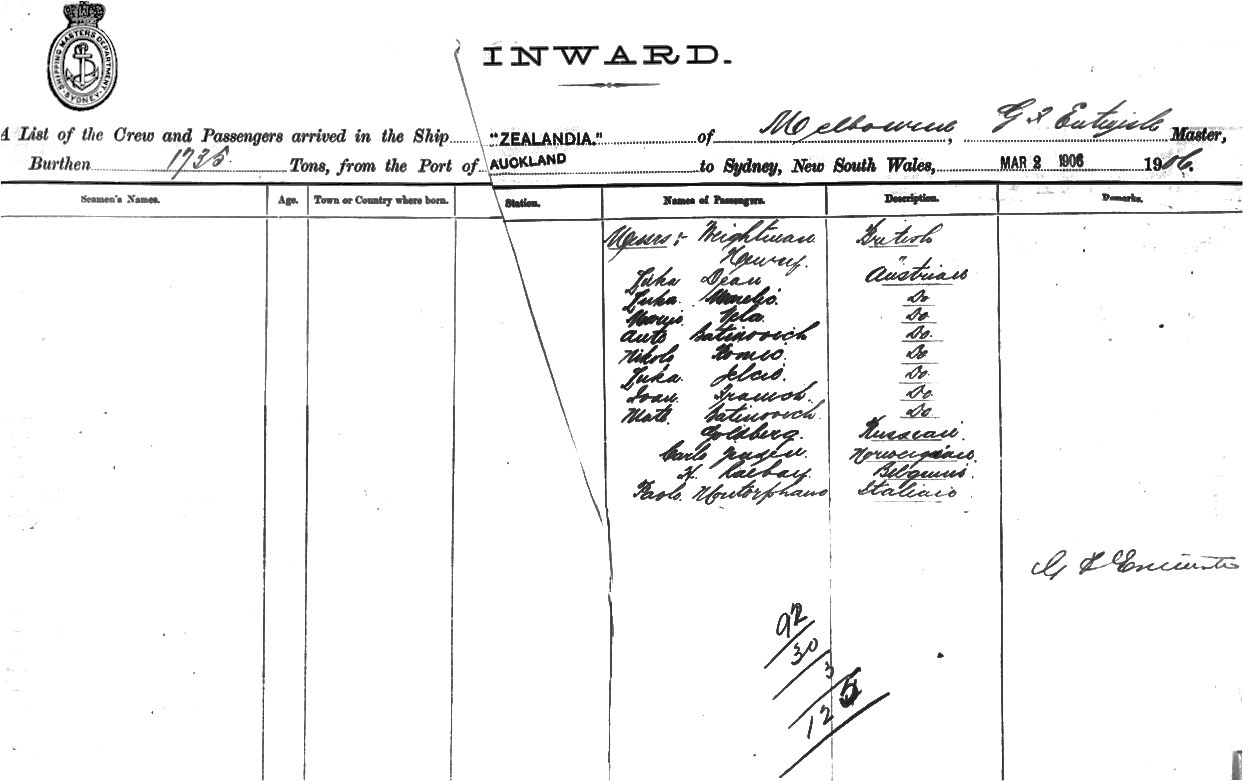 SHIPPING MASTERS DEPARTMENT SYDNEY
INWARD.
A List of the Crew and Passengers arrived in the Ship "ZEALANDIA." of Melbourne, Master,
Burthen 1735 Tons, from the Port of AUCKLAND to Sydney, New South Wales, MAR 2 1906 1906.
Seamen's Names. Age. Town or Country where born. Station. Names of Passengers. Description. Remarks.
Messrs :- Weightman British
Henry. "
Luka Dean Austrian
Luka Do
Do
Ante Batinovich Do
Nikola Do
Luka Jelcic. Do
Ivan Do
Mate Batinovich Do
Goldberg. Russian.
Carlo Norwegian.
H.
Paolo Montorphano Italian
92
30
3
125